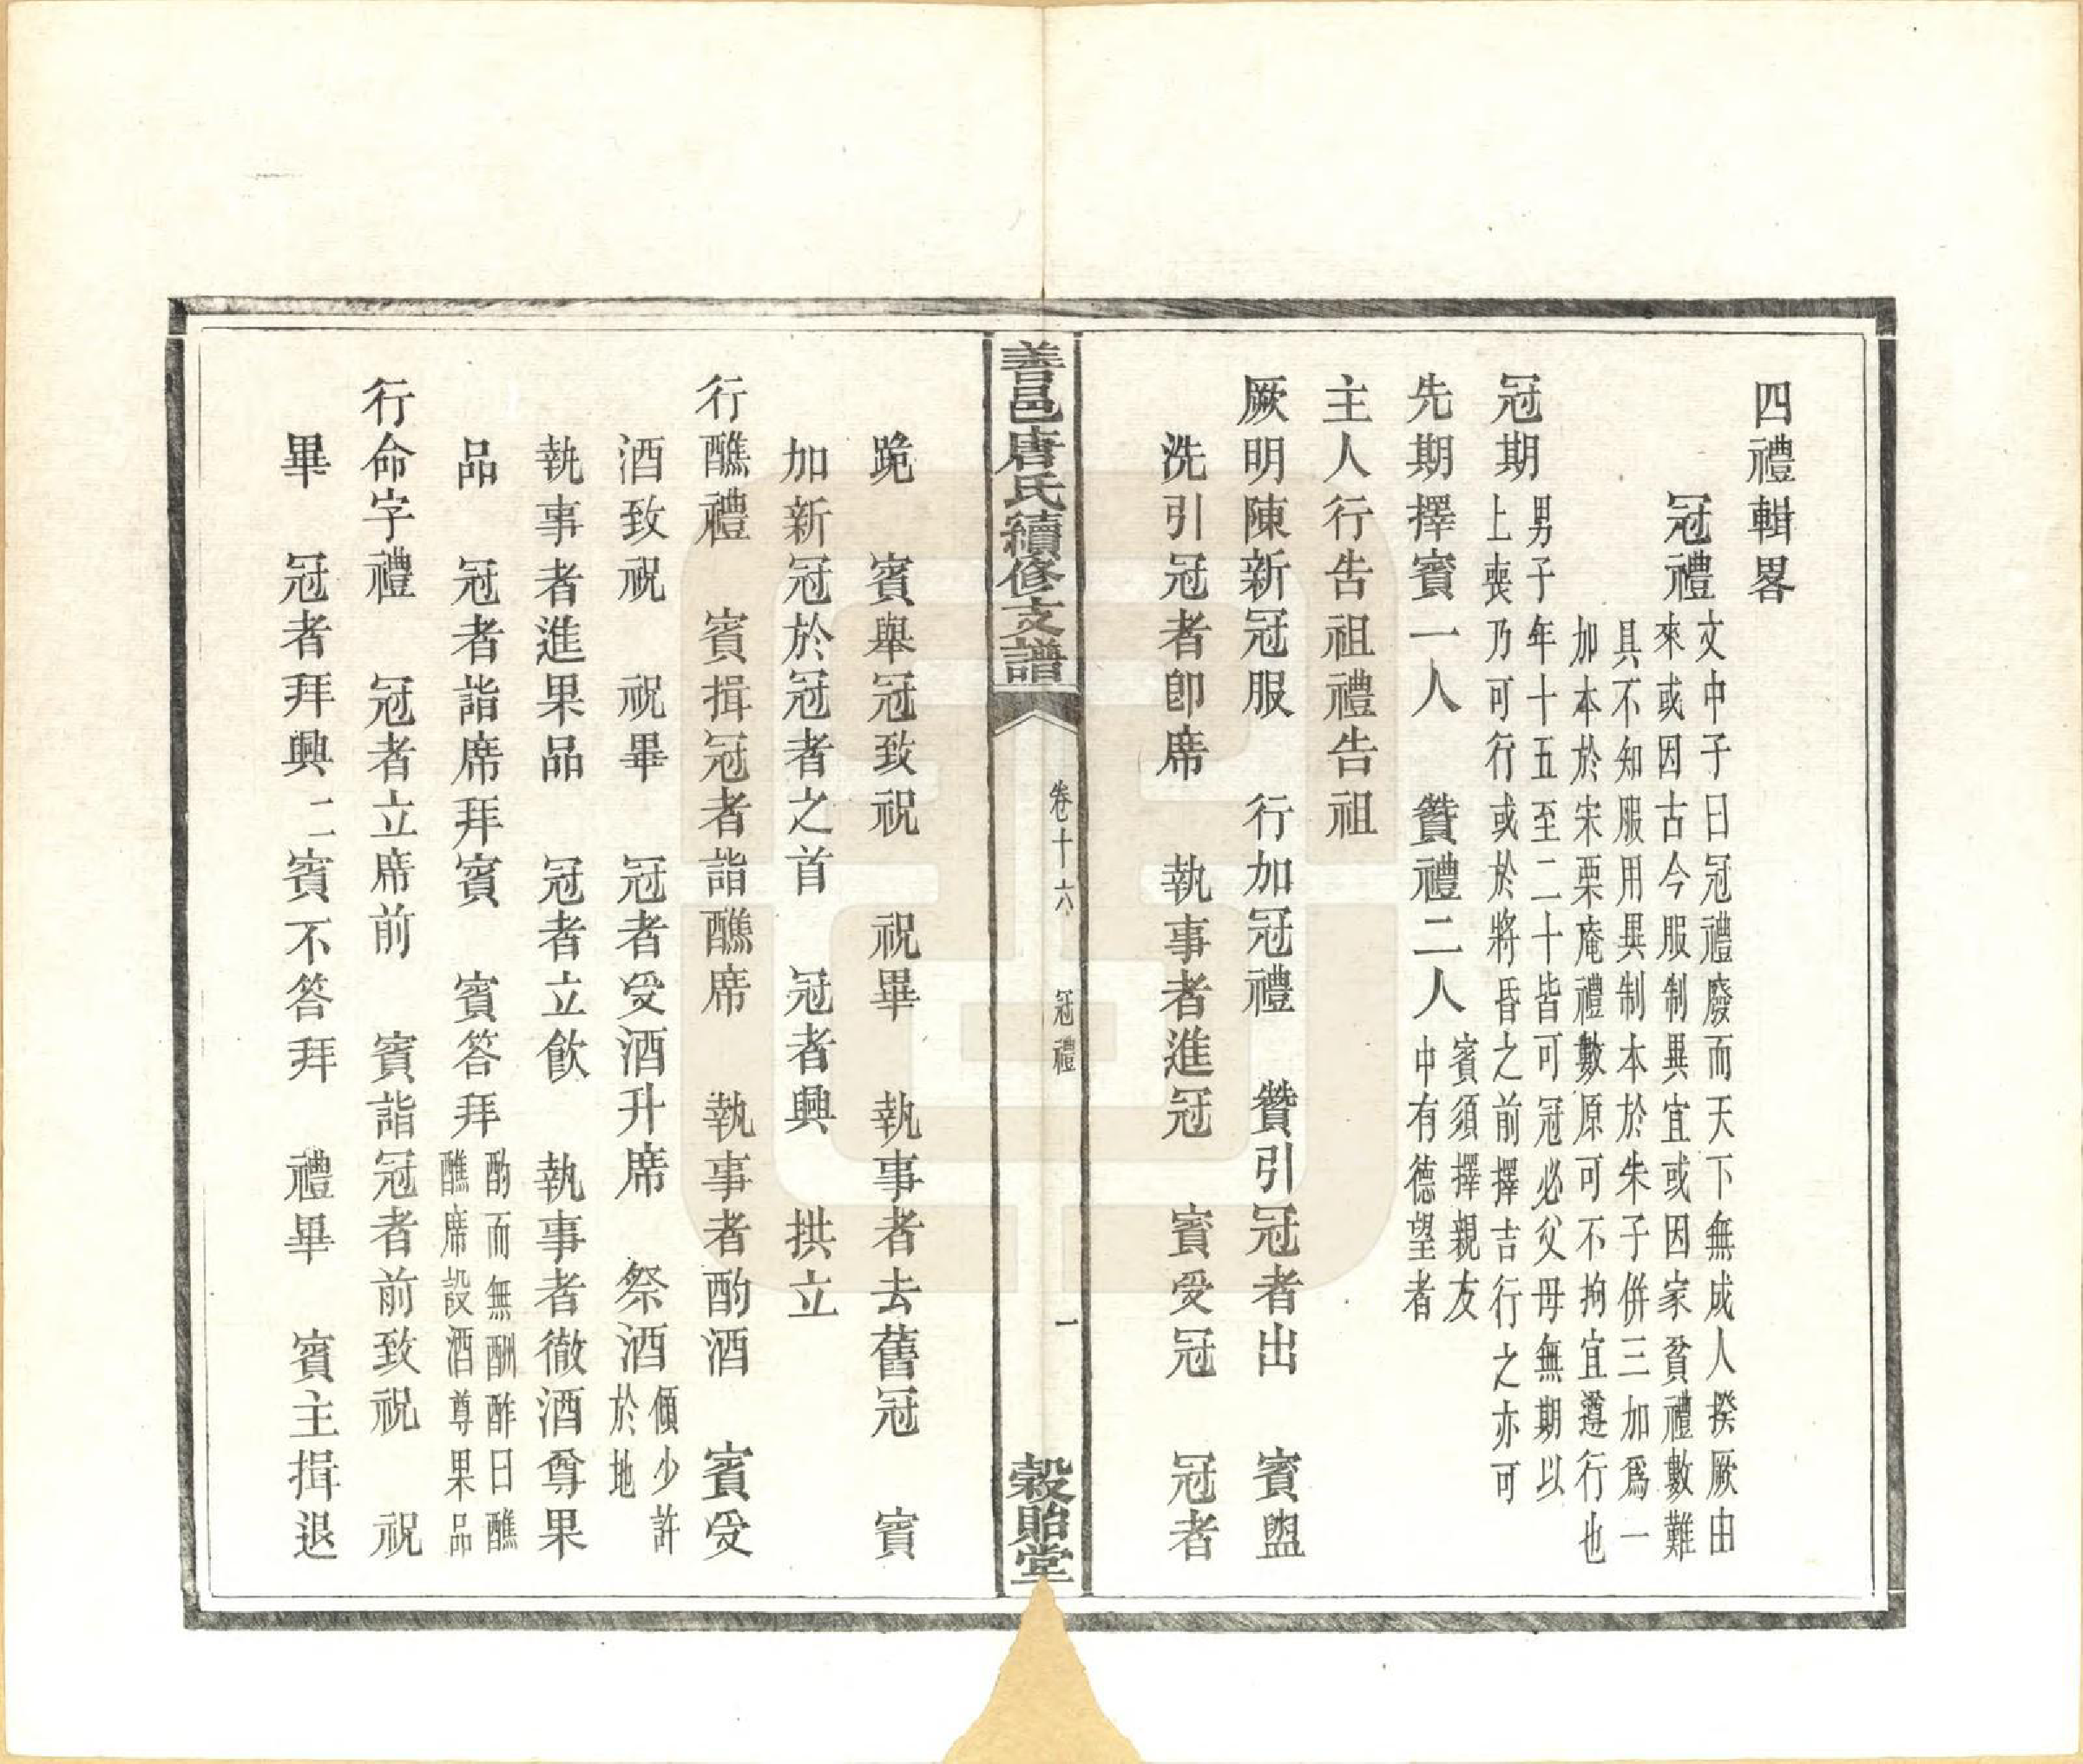 四禮輯畧
冠禮
文中子曰冠禮廢而天下無成人揆厥由
來或因古今服制異宜或因家貧禮數難
具不知服用異制本於朱子併三加爲一
加本於宋栗庵禮數原可不拘宜遵行也
冠期
男子年十五至二十皆可冠必父母無期以
上喪乃可行或於將昏之前擇吉行之亦可
先期擇賓一人　贊禮二人
賓須擇親友
中有德望者
主人行告祖禮告祖
厥明陳新冠服　行加冠禮　贊引冠者出　賓盥
洗引冠者卽席　執事者進冠　賓受冠　冠者
善邑唐氏續修支譜
卷十六
冠禮
一
穀貽堂
跪　賓舉冠致祝　祝畢　執事者去舊冠　賓
加新冠於冠者之首　冠者興　拱立
行醮禮　賓揖冠者詣醮席　執事者酌酒　賓受
酒致祝　祝畢　冠者受酒升席　祭酒
傾少許
於地
執事者進果品　冠者立飲　執事者徹酒尊果
品　冠者詣席拜賓　賓答拜
酌而無酬酢曰醮
醮席設酒尊果品
行命字禮　冠者立席前　賓詣冠者前致祝　祝
畢　冠者拜興二賓不答拜　禮畢　賓主揖退